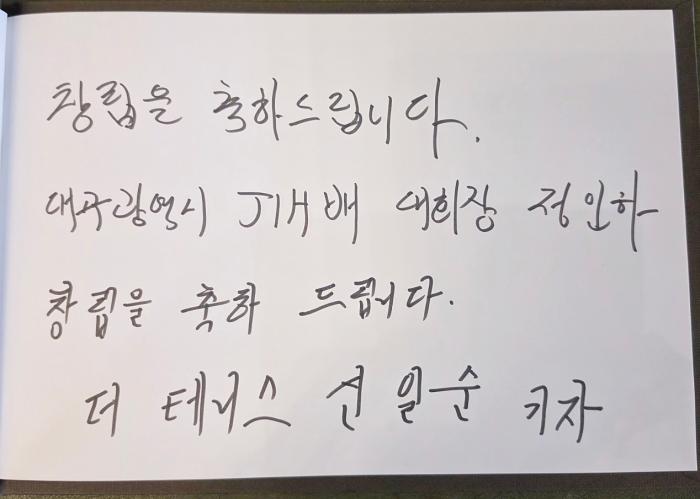 창립을 축하드립니다.
대구광역시 JIH배 대회장 정인하
창립을 축하 드립니다.
더 테니스 선 일순 기자